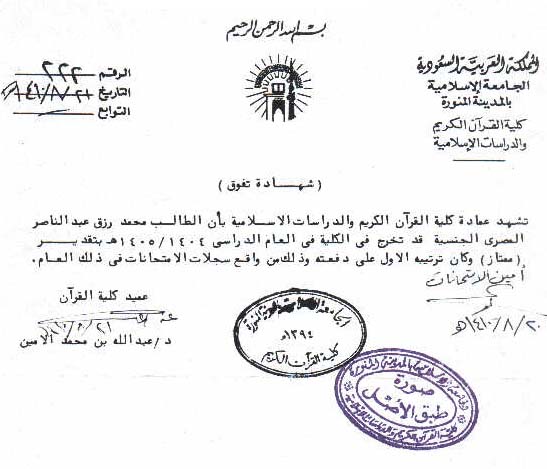 بسم الله الرحمن الرحيم
المملكة العربية السعودية
الجامعة الإسلامية
بالمدينة المنورة
كلية القرآن الكريم
والدراسات الإسلامية
الرقم ٢٢٢
التاريخ ١٤١٠/٨/٢١
التوابع
(شهادة تفوق)
تشهد عمادة كلية القرآن الكريم والدراسات الاسلامية بأن الطالب محمد رزق عبد الناصر
المصرى الجنسية قد تخرج فى الكلية فى العام الدراسى ١٤٠٥/١٤٠٤هـ بتقدير
(ممتاز) وكان ترتيبه الاول على دفعته وذلك من واقع سجلات الامتحانات فى ذلك العام.
أمين الامتحانات
١٤١٠/٨/٢٠هـ
عميد كلية القرآن
د/عبدالله بن محمد الأمين
الجامعة الإسلامية بالمدينة المنورة
١٣٩٤هـ
كلية القرآن الكريم
صورة
طبق الأصل